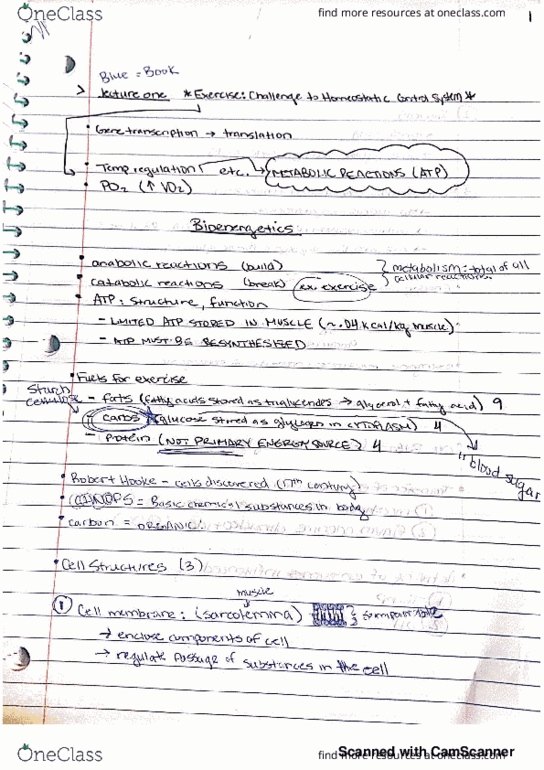 OneClass
find more resources at oneclass.com
1
Blue = Book
> lecture one * Exercise: Challenge to Homeostatic Control System *
• Gene transcription → translation
• Temp regulation etc. → METABOLIC REACTIONS (ATP)
• PO2 (↑ VO2)
Bioenergetics
• anabolic reactions (build)
• catabolic reactions (break) ex. exercise
} metabolism: total of all cellular reactions
• ATP: Structure, function
- LIMITED ATP STORED IN MUSCLE (~.04 Kcal/kg muscle)
- ATP MUST BE RESYNTHESIZED
• Fuels for exercise
Starch
cellulose
- fats (fatty acids stored as triglycerides → glycerol + fatty acid) 9
- carbs (glucose stored as glycogen in CYTOPLASM) 4
- Protein (NOT PRIMARY ENERGY SOURCE) 4
in blood sugar
• Robert Hooke - cells discovered (17th century)
• CHNOPS = Basic chemical substances in body
• carbon = ORGANIC
• Cell Structures (3)
muscle
① Cell membrane: (sarcolemma)
→ enclose components of cell
→ regulate passage of substances in the cell
OneClass
find more resources at oneclass.com
Scanned with CamScanner